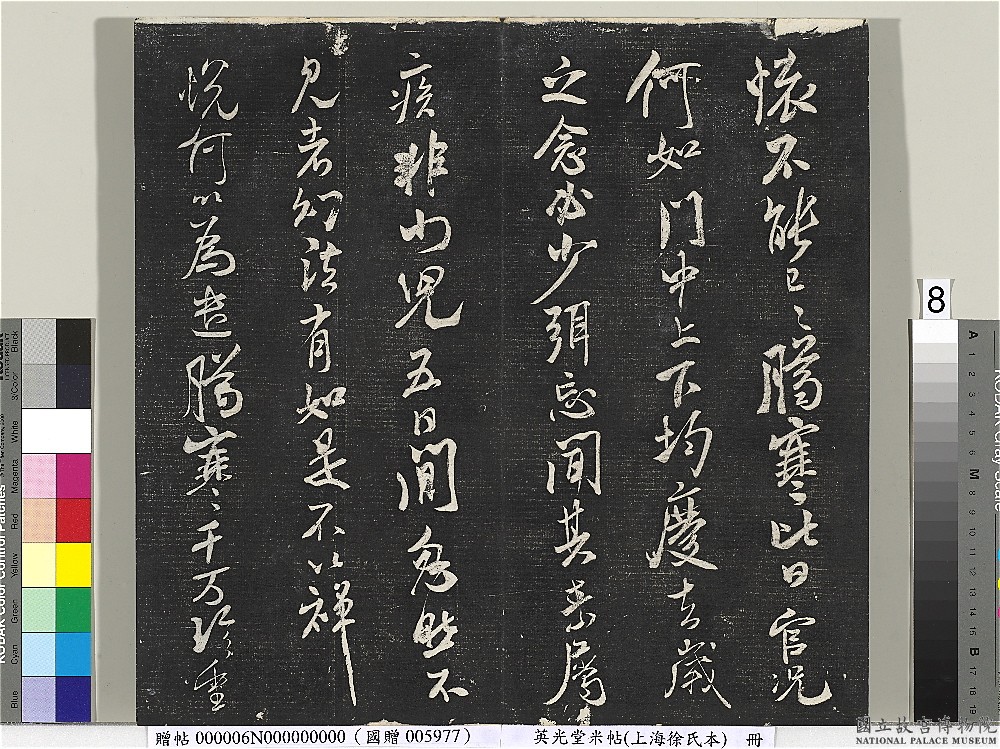 懷不能已〻臈寒〻此日官况
何如門中上下均慶去歲
之念必少弭忘聞其素屬
疾非小児五日間忽然不
見者幻法有如是不以禅
悦何以為遣臈寒〻千万珍重
8
贈帖 000006N000000000 (國贈 005977)
英光堂米帖(上海徐氏本) 冊
國立故宮博物院
NATIONAL PALACE MUSEUM
KODAK Color Control Patches
Blue Cyan Green Yellow Red Magenta White 3/Color Black
A 1 2 3 4 5 6 M 8 9 10 11 12 13 14 15 B 17 18 19